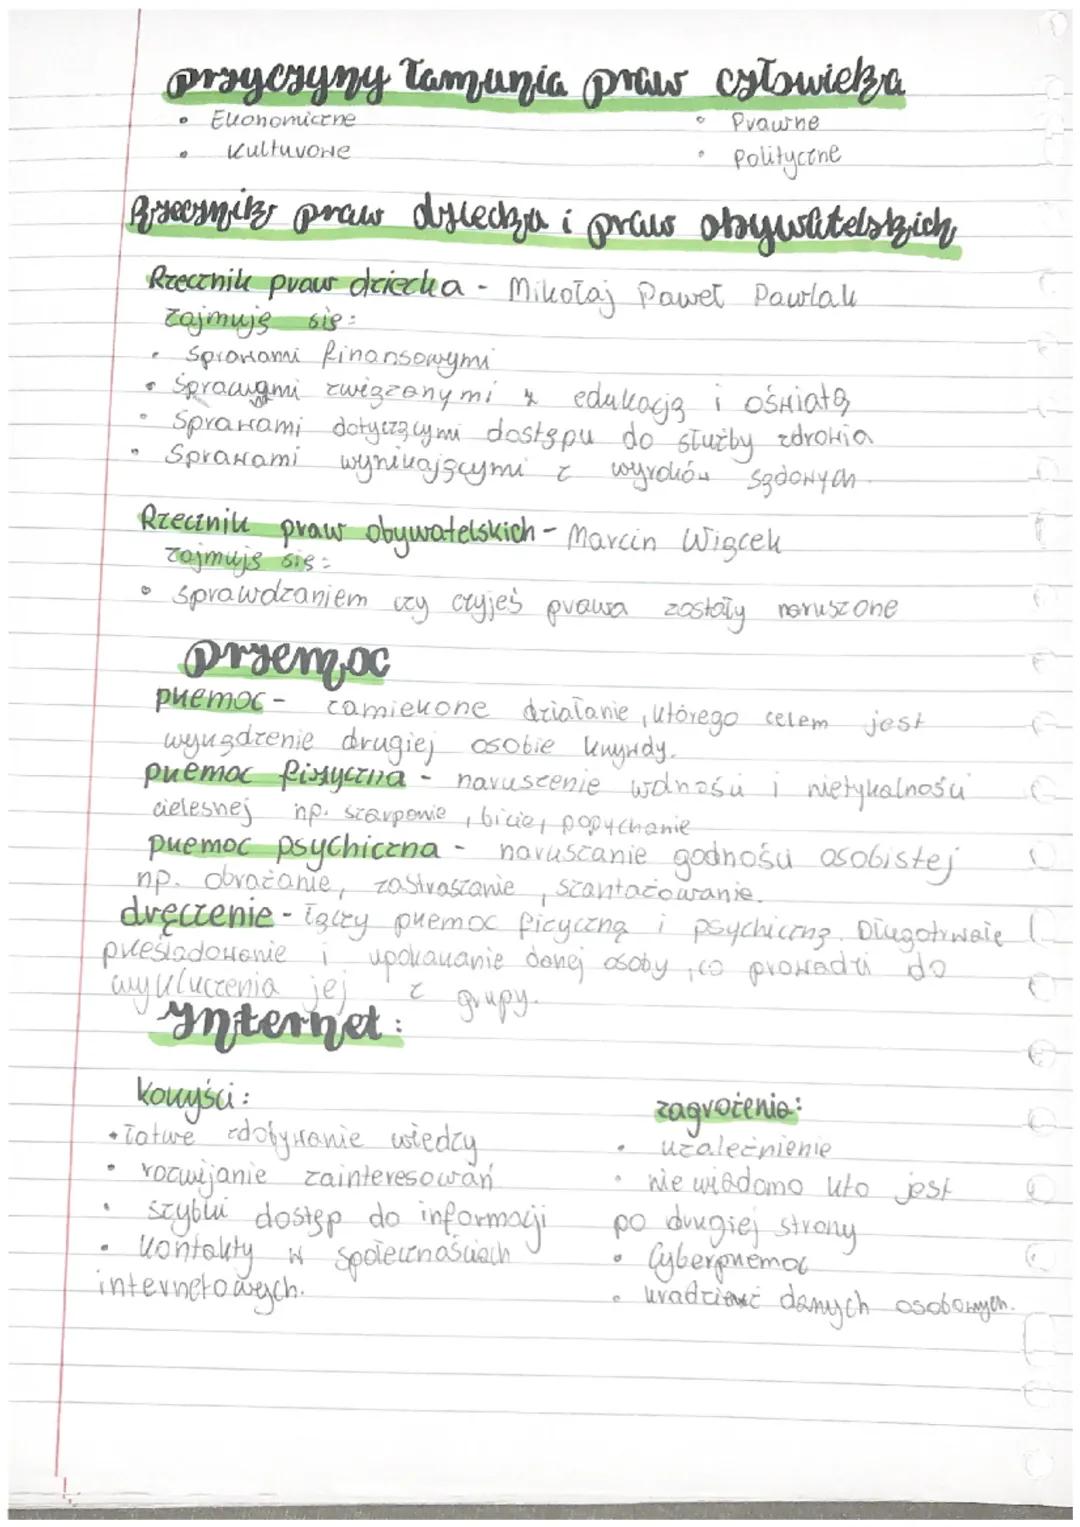 przyczyny łamania praw człowieka
• Ekonomiczne
• Prawne
• Kulturowe
• Polityczne
Rzecznik praw dziecka i praw obywatelskich
Rzecznik praw dziecka - Mikołaj Paweł Pawlak
zajmuję się:
• Sprawami finansowymi
• Sprawami związanymi z edukacją i oświatą
• Sprawami dotyczącymi dostępu do służby zdrowia
• Sprawami wynikającymi z wyroków sądowych
Rzecznik praw obywatelskich - Marcin Wiącek
zajmuję się:
• sprawdzaniem czy czyjeś prawa zostały naruszone
przemoc
przemoc - zamierzone działanie, którego celem jest
wyrządzenie drugiej osobie krzywdy.
przemoc fizyczna - naruszenie wolności i nietykalności
cielesnej np. szarpanie, bicie, popychanie
przemoc psychiczna - naruszanie godności osobistej
np. obrażanie, zastraszanie, szantażowanie.
dręczenie - łączy przemoc fizyczną i psychiczną. Długotrwałe
prześladowanie i upokarzanie danej osoby, co prowadzi do
wykluczenia jej z grupy.
Internet:
korzyści:
zagrożenia:
• łatwe zdobywanie wiedzy
• uzależnienie
• rozwijanie zainteresowań
• nie wiadomo kto jest
• szybki dostęp do informacji
po drugiej strony
• kontakty w społecznościach
• Cyberprzemoc
internetowych.
• kradzież danych osobowych.